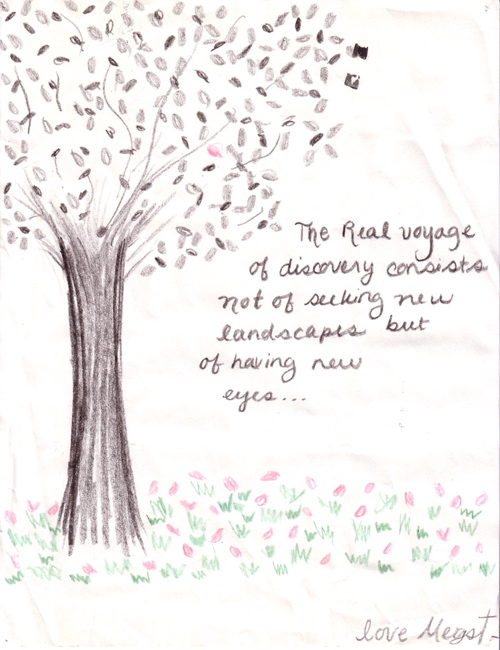 The Real voyage
of discovery consists
not of seeking new
landscapes but
of having new
eyes...
love Megst-